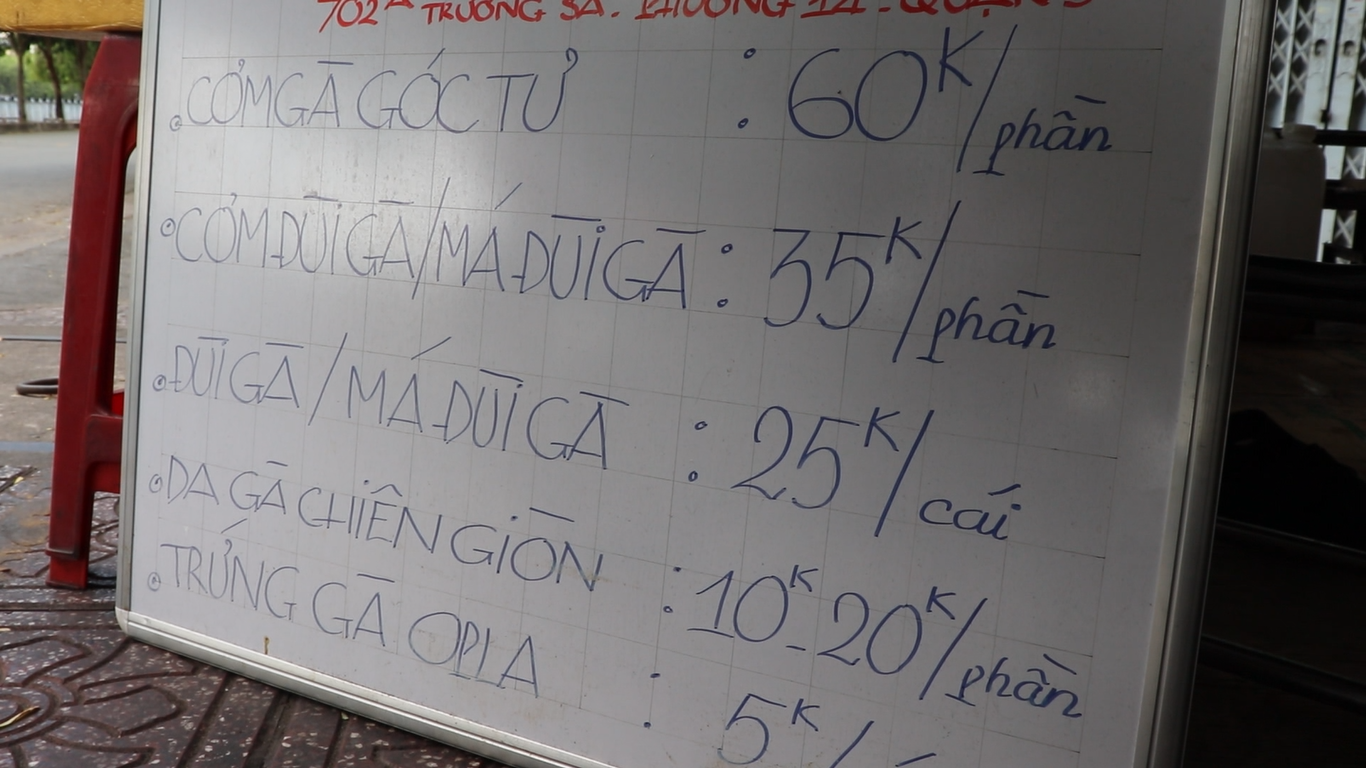 702A TRƯỜNG SA. PHƯỜNG 14. QUẬN 3
CƠM GÀ GÓC TƯ : 60K/phần
CƠM ĐÙI GÀ/MÁ ĐÙI GÀ : 35K/phần
ĐÙI GÀ/MÁ ĐÙI GÀ : 25K/cái
DA GÀ CHIÊN GIÒN : 10K-20K/phần
TRỨNG GÀ OPLA : 5K/